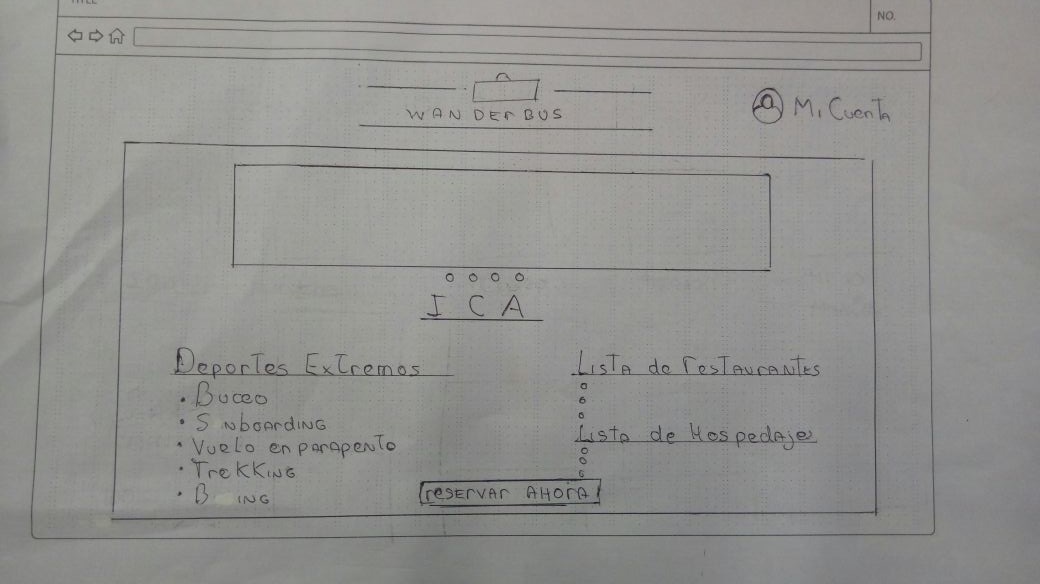 NO.
WANDERBUS
Mi Cuenta
ICA
Deportes Extremos
• Buceo
•
• Vuelo en parapente
• Trekking
•
Lista de restaurantes
Lista de Hospedajes
reservar ahora